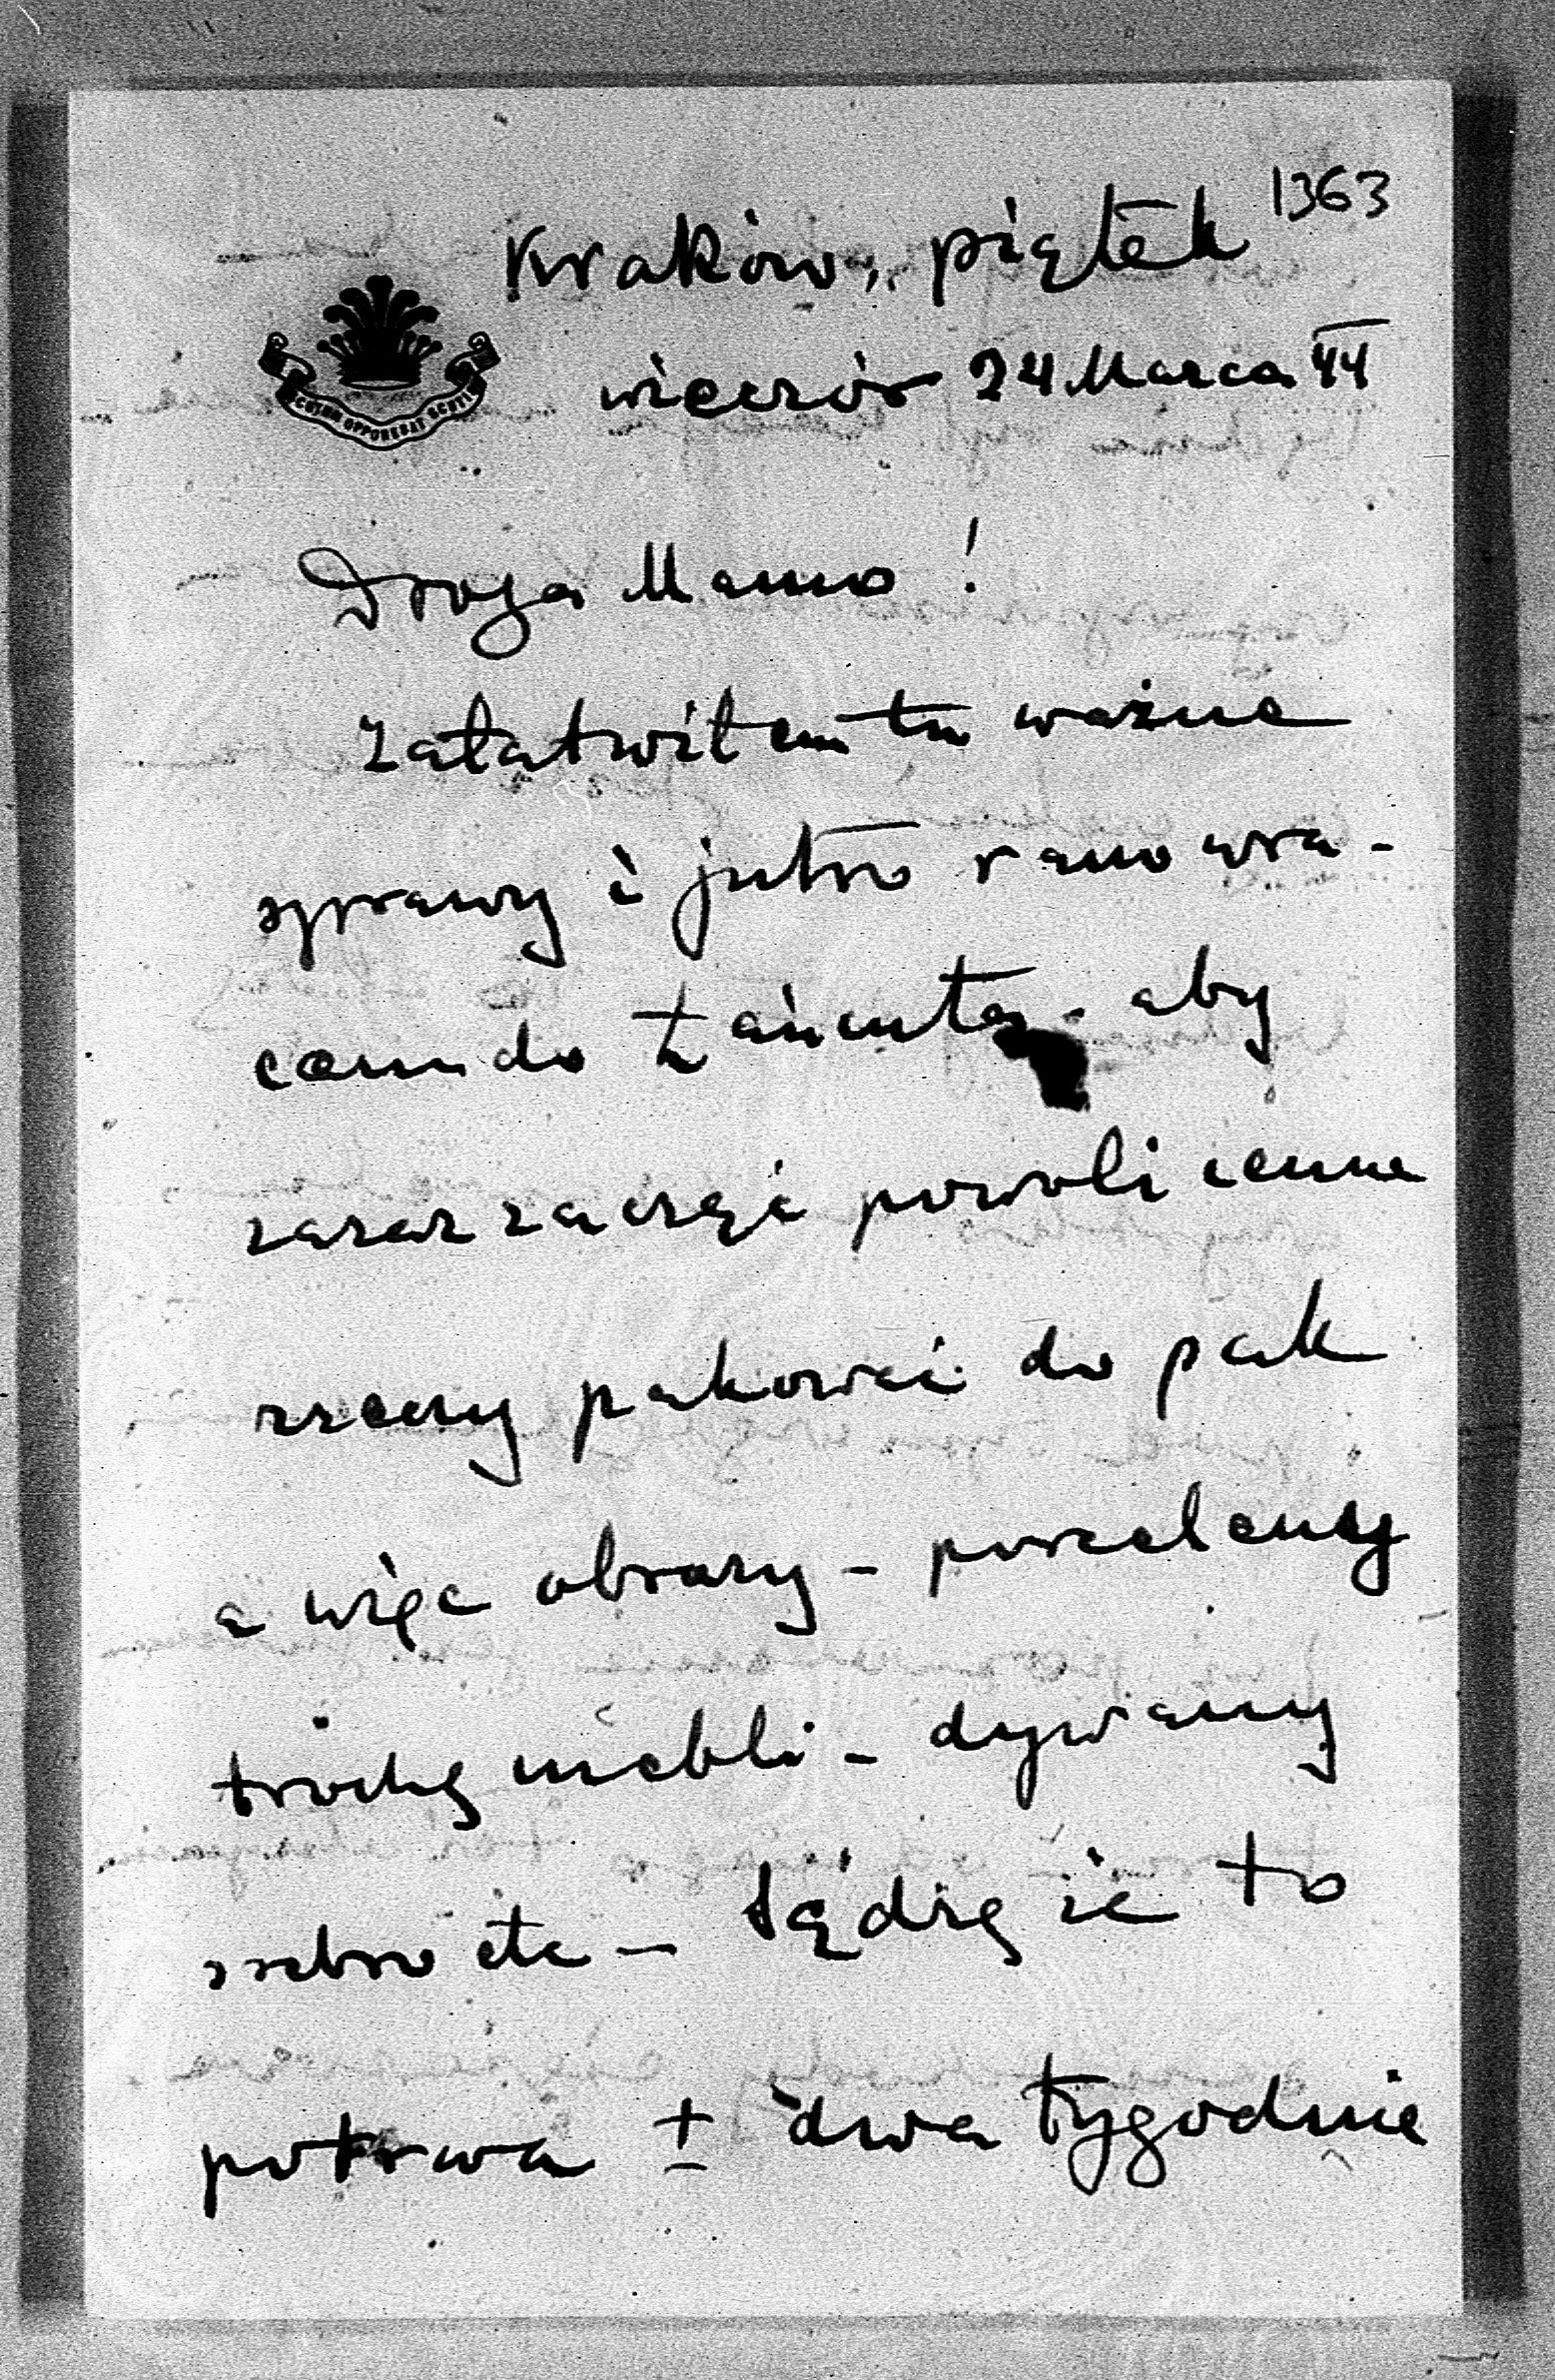 1363
Kraków, piątek
wieczór 24 Marca 44
SCUTUM OPPONEBAT SCUTIS
Droga Mamo!
załatwiłem tu ważne
sprawy i jutro rano wra-
cam do Łańcuta - aby
zaraz zacząć powoli cenne
rzeczy pakować do pak
a więc obrazy - porcelanę
trochę mebli - dywany
srebro etc - Sądzę że to
potrwa ± dwa tygodnie